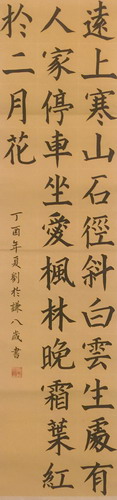 遠上寒山石徑斜白雲生處有
人家停車坐愛楓林晚霜葉紅
於二月花
丁酉年夏劉於謙八歲書